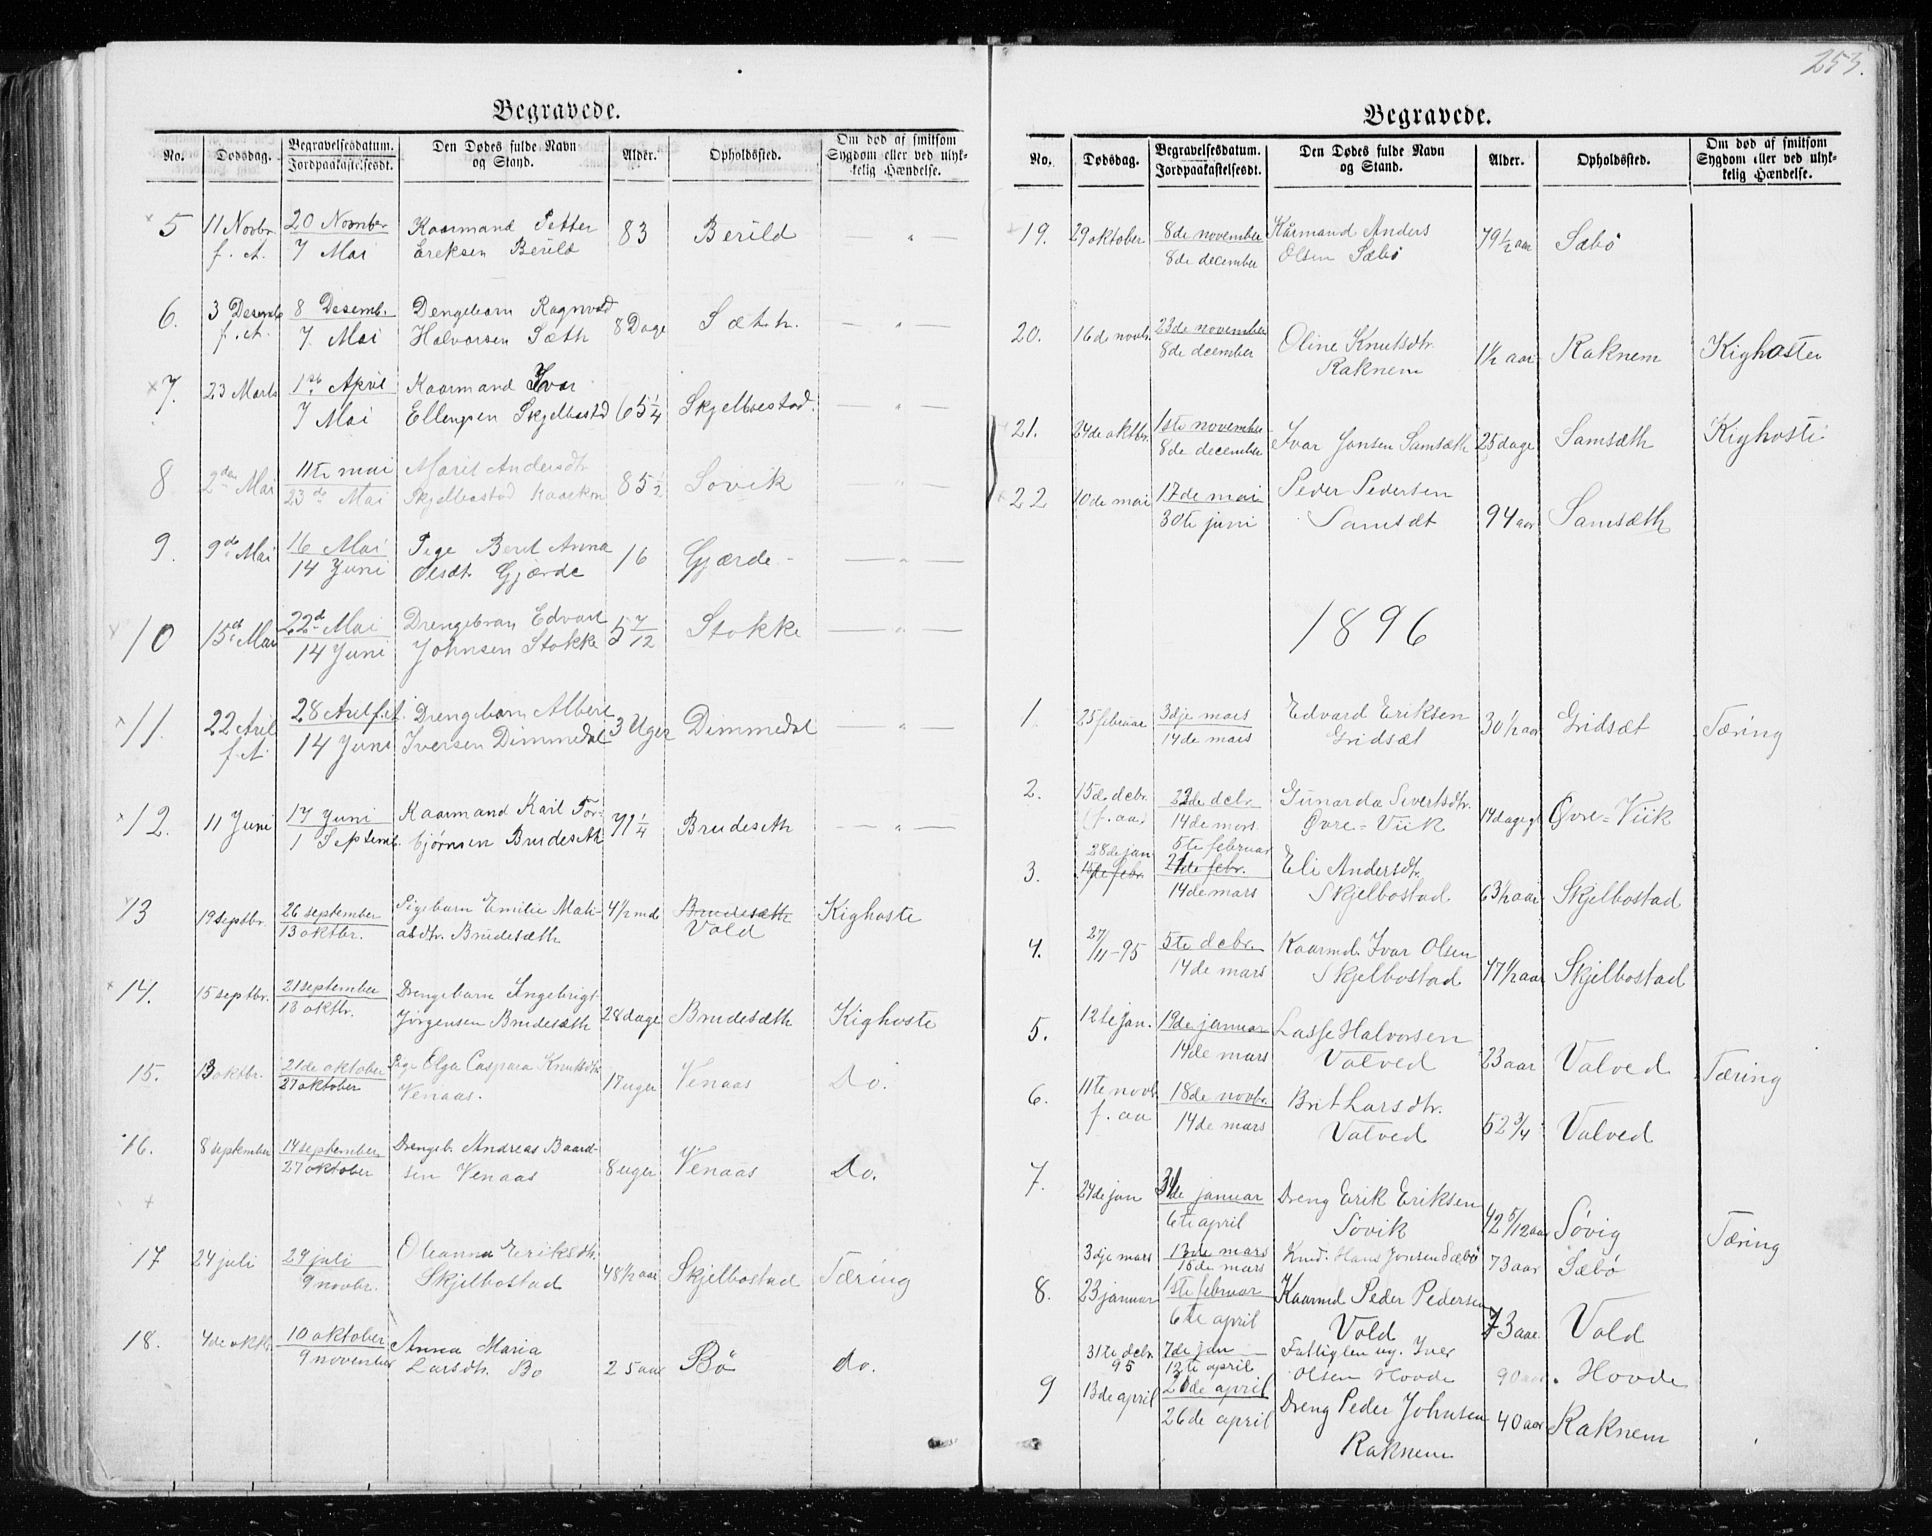 253.
Begravede.
No. Dødsdag. Begravelsesdatum. Jordpaakastelsesdt. Den Dødes fulde Navn og Stand. Alder. Opholdssted. Om død af smitsom Sygdom eller ved ulykkelig Hændelse.
5 11 Novbr. 20 Novmber Kaarmand Petter 83 Berild — " —
f. A. 7 Mai Ereksen Berild
6. 3 Desemb 8 Desemb. Dengebarn Ragnvald 8 Dage Sæth. — " —
f. A. 7. Mai Halvorsen Sæth
7. 23 Marts 1st April Kaarmand Ivar 65 1/4 Skjelbostad. — " —
7 Mai Skjelbostd
8 2den Mai 11te mai Marit Andersdtr 85 1/2 Sovik — " —
23de Mai Skjelbostad
9. 9de Mai 16 Mai Pige Berit Anna 16 Gjærde - — " —
14 Juni Olsdt. Gjærde
10 15d Mai 22d Mai Drengebran Edvart 5 7/12 Stokke — " —
14 Juni Johnsen Stokke
11. 22 Aril 28 Aril f.A. Drengebarn Albert 3 Uger Dimmedal — " —
f. A 14 Juni Iversen Dimmedal
12. 11 Juni 17 Juni Kaarmand Karl Tor- 71 1/4 Brudeseth — " —
1 Septemb. bjørnsen Brudeseth
13 19 septbr. 26 september Pigebarn Emilie Mati- 4 1/2 md Brudesæth Kighoste
13 oktbr. asdtr. Brudesæth Vold
14. 15 septbr. 21 september Drengebarn Ingebrigt 28 dage Brudesæth Kighoste
13 oktbr. Jørgensen Brudesæth
15. 13 oktbr. 21de oktober Pige Elga Caspara Knutsdtr 17 uger Venaas Do.
27 oktober Venaas.
16. 8 september 14 september Drengeb. Andreas Baard- 8 uger Venaas Do.
27 oktober sen Venaas
17 24 juli 29 juli Oleanna Eriksdtr. 48 1/2 aar Skjelbostad Tæring
9 novbr. Skjelbostad
18. 4de oktbr 10 oktober Anna Maria 25 aar Bø Do.
9 november Larsdtr. Bo
Begravede.
No. Dødsdag. Begravelsesdatum. Jordpaakastelsesdt. Den Dødes fulde Navn og Stand. Alder. Opholdssted. Om død af smitsom Sygdom eller ved ulykkelig Hændelse.
19. 29 oktober 8de november Kårmand Anders 79 1/2 aar Sæbø
8de december Olsen Sæbø
20. 16de novbr. 23de november Oline Knutsdtr. 1 1/2 aar Raknem Kighoste
8de december Raknem
21. 24de oktbr. 1ste november Ivar Jonsen Samsæth 25 dage Samsæth Kighoste
8de december
22 10de mai 17de mai Peder Pedersen 94 aar Samsæth
30te juni Samsæt
1896
1. 25 februar 3dje mars Edvard Eriksen 30 1/2 aar Gridsæt Tæring
14de mars Gridsæt
2. 15de debr. 22de debr. Gunarda Sivertsdtr. 14 dage gl Øvre=Viik
(f. aa) 14de mars Øvre=Viik
3. 28de jan 5te februar Eli Andersdtr. 63 1/2 aar Skjelbostad
15de febr. 21de febr.
14de mars Skjelbostad
4. 27/11-95 5te debr. Kaarmd. Ivar Olsen 77 1/2 aar Skjelbostad
14de mars Skjelbostad
5. 12te jan. 19de januar Lasse Halvorsen 23 aar Valved Tæring
14de mars Valved
6. 11te novbr. 18de novbr. Brit Larsdtr. 52 3/4 Valved
f. aa 14de mars Valved
7. 24de jan 31de januar Dreng Erik Eriksen 42 5/12 aar Søvig Tæring
6te april Søvik
3dje mars 12te mars Knud. Hans Jonsen Sæbø 73 aar Sæbø
15de mars
8. 23 januar 1ste februar Kaarmd Peder Pedersen 73 aar Vold
6te april Vold
31te debr. 95 7de jan — Fattiglem ug. Iver 90 aar. Hovde
12te april Olsen Hovde
9 13de april 20de april Dreng Peder Johnsen 40 aar Raknem
26de april Raknem